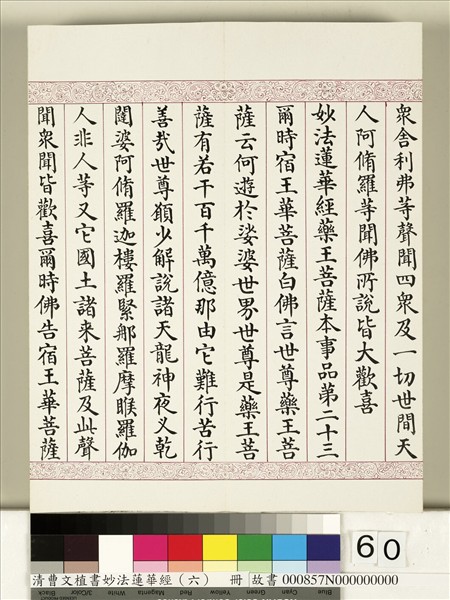 衆舍利弗等聲聞四衆及一切世間天
人阿脩羅等聞佛所說皆大歡喜
妙法蓮華經藥王菩薩本事品第二十三
爾時宿王華菩薩白佛言世尊藥王菩
薩云何遊於娑婆世界世尊是藥王菩
薩有若干百千萬億那由它難行苦行
善哉世尊願少解說諸天龍神夜叉乾
闥婆阿脩羅迦樓羅緊那羅摩睺羅伽
人非人等又它國土諸来菩薩及此聲
聞衆聞皆歡喜爾時佛告宿王華菩薩
60
清曹文植書妙法蓮華經（六） 冊 故書 000857N000000000